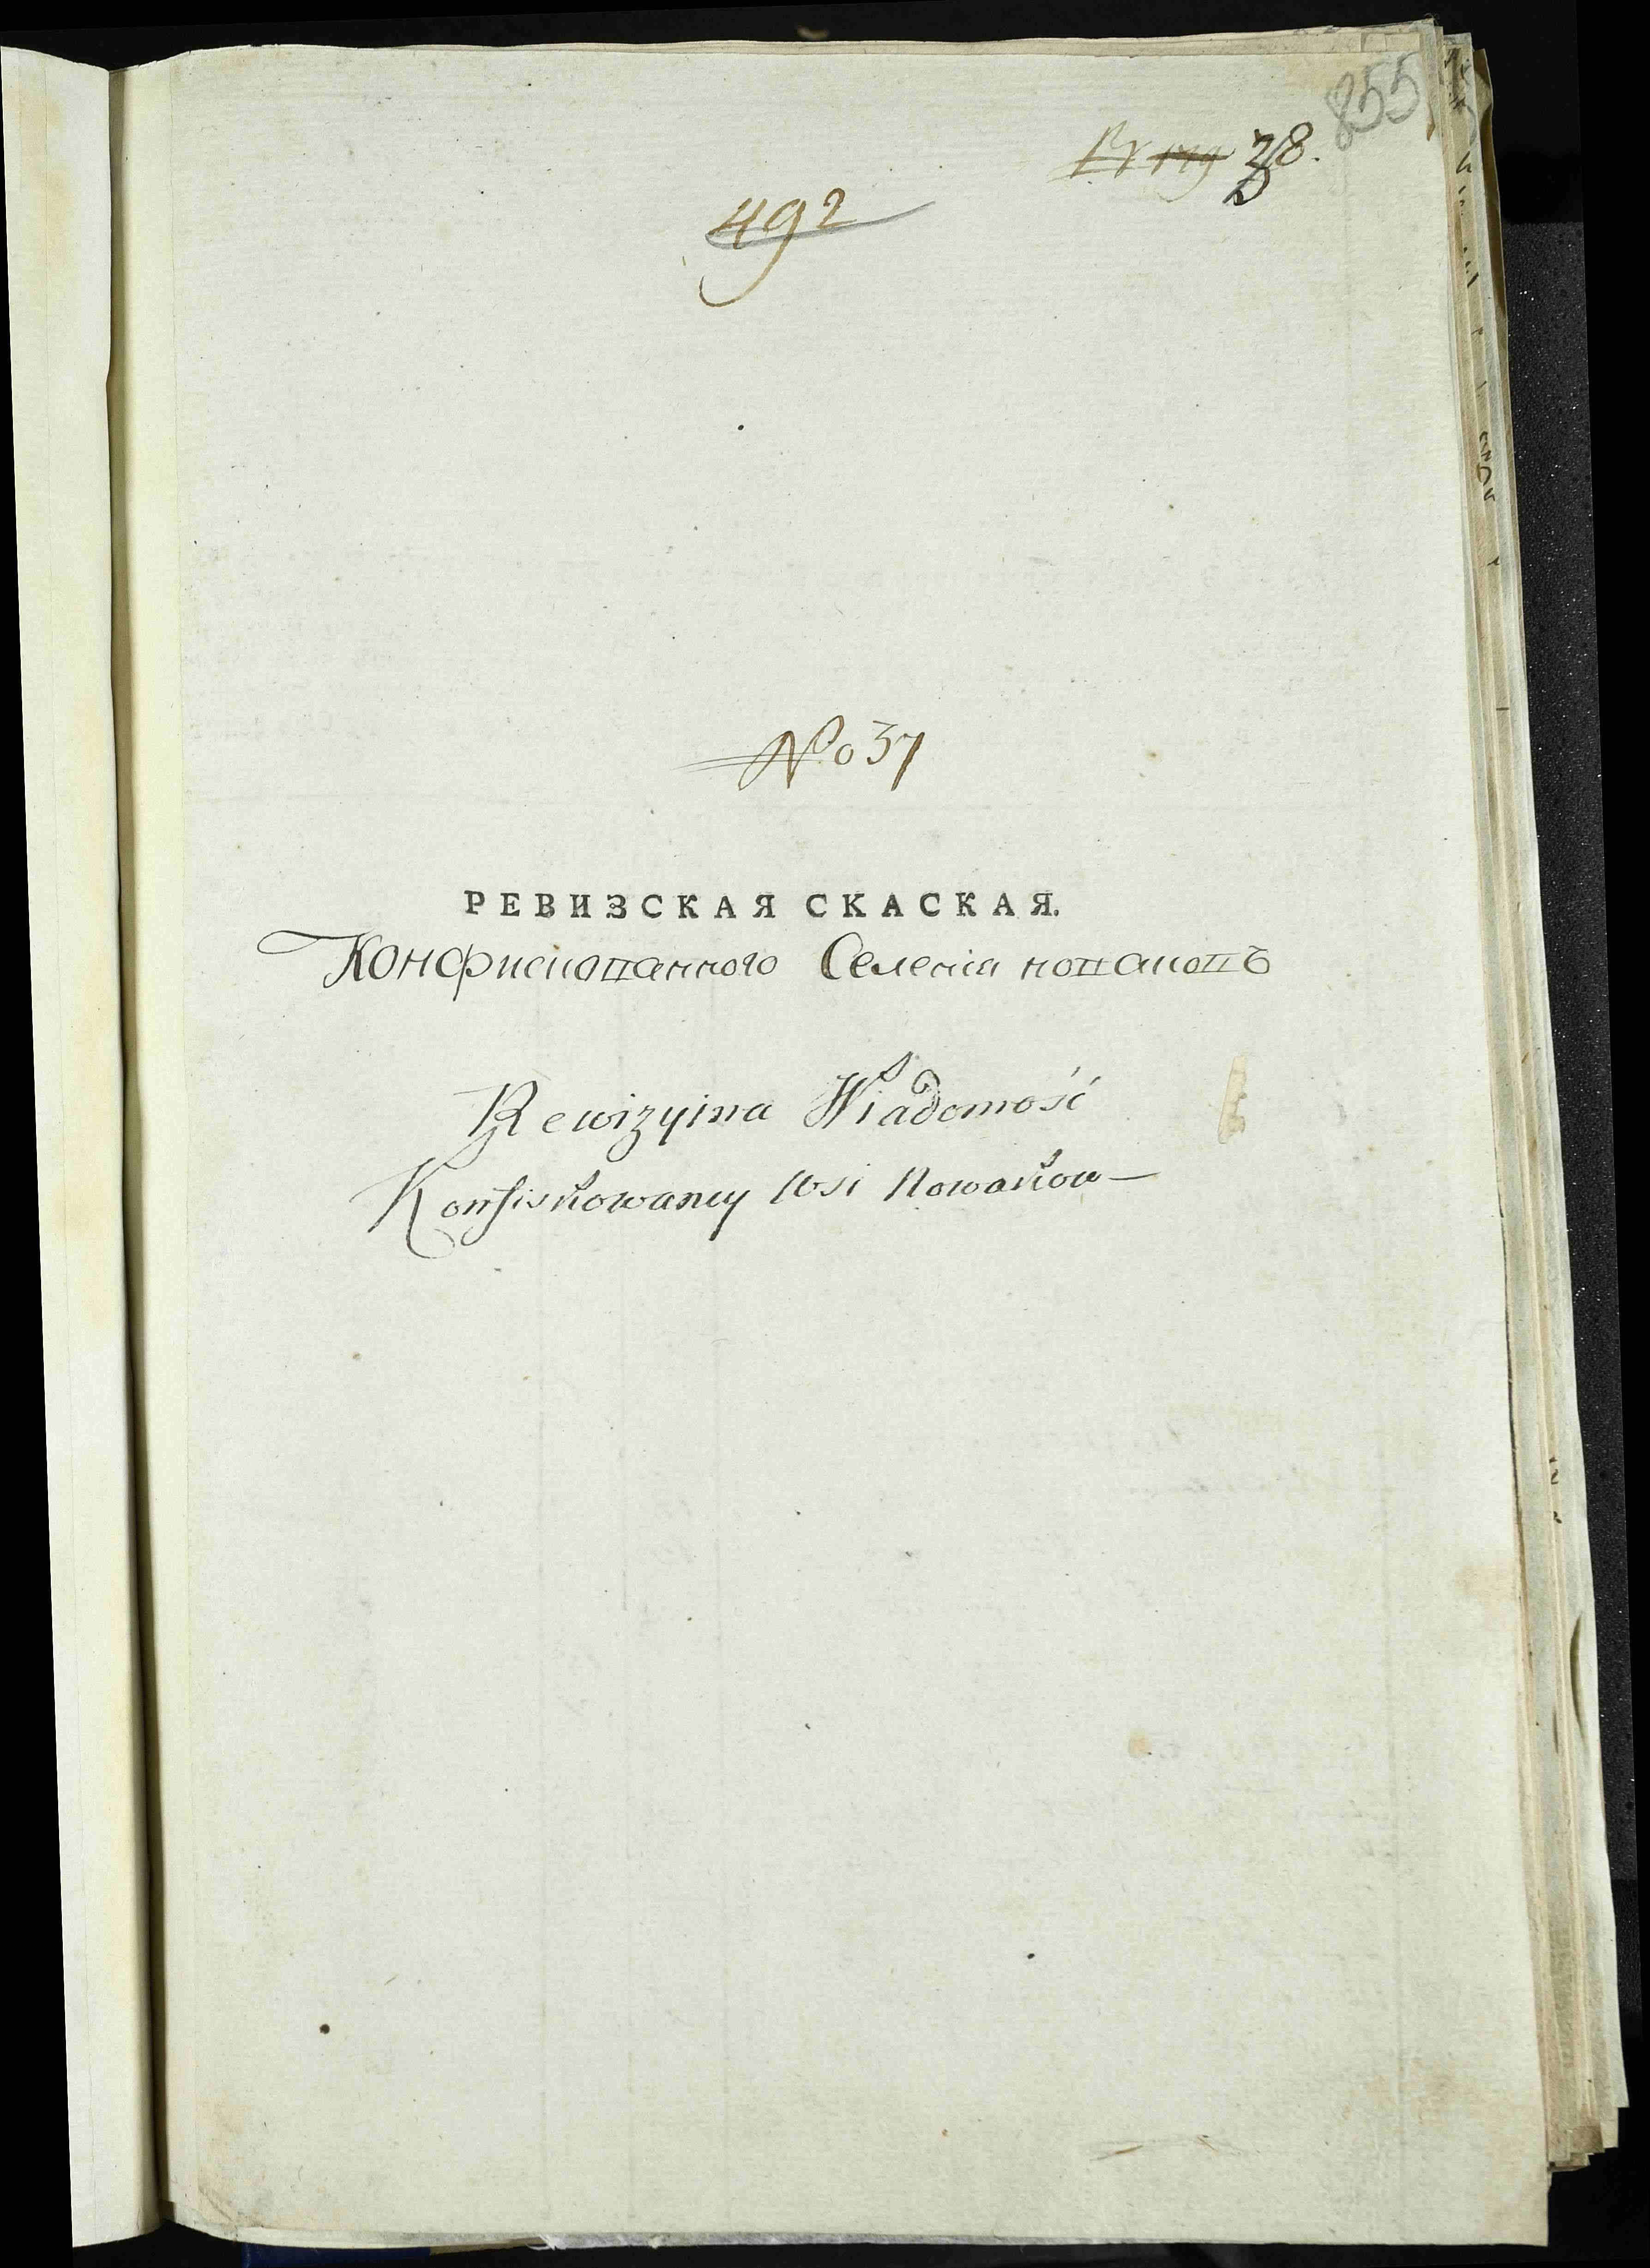 855
28.
492
No 37
РЕВИЗСКАЯ СКАСКАЯ.
Конфискованного Селенія новаковъ
Rewizyina Wiadomość
Konfiskowaney Wsi Nowakow